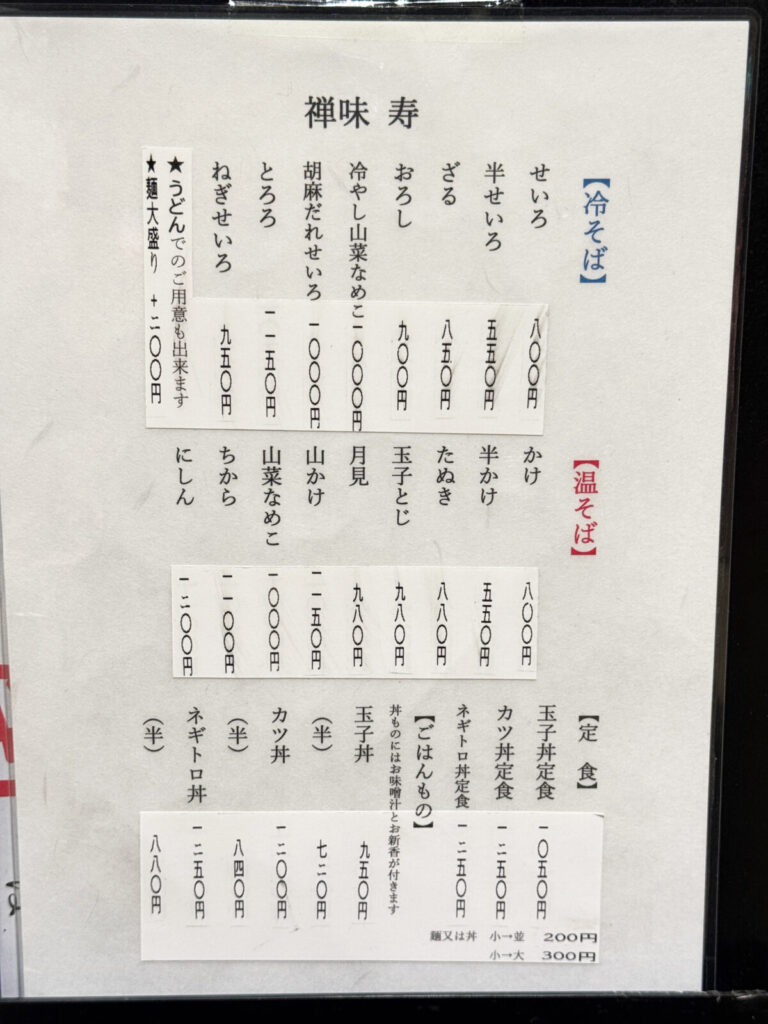 禅味 寿
【冷そば】
せいろ 八〇〇円
半せいろ 五五〇円
ざる 八五〇円
おろし 九〇〇円
冷やし山菜なめこ 一〇〇〇円
胡麻だれせいろ 一〇〇〇円
とろろ 一一五〇円
ねぎせいろ 九五〇円
★うどんでのご用意も出来ます
★麺大盛り +二〇〇円
【温そば】
かけ 八〇〇円
半かけ 五五〇円
たぬき 八八〇円
玉子とじ 九八〇円
月見 九八〇円
山かけ 一一五〇円
山菜なめこ 一〇〇〇円
ちから 一一〇〇円
にしん 一二〇〇円
【定食】
玉子丼定食 一〇五〇円
カツ丼定食 一二五〇円
ネギトロ丼定食 一二五〇円
麺又は丼 小→並 200円
小→大 300円
【ごはんもの】
丼ものにはお味噌汁とお新香が付きます
玉子丼 九五〇円
(半) 七二〇円
カツ丼 一二〇〇円
(半) 八四〇円
ネギトロ丼 一二五〇円
(半) 八八〇円